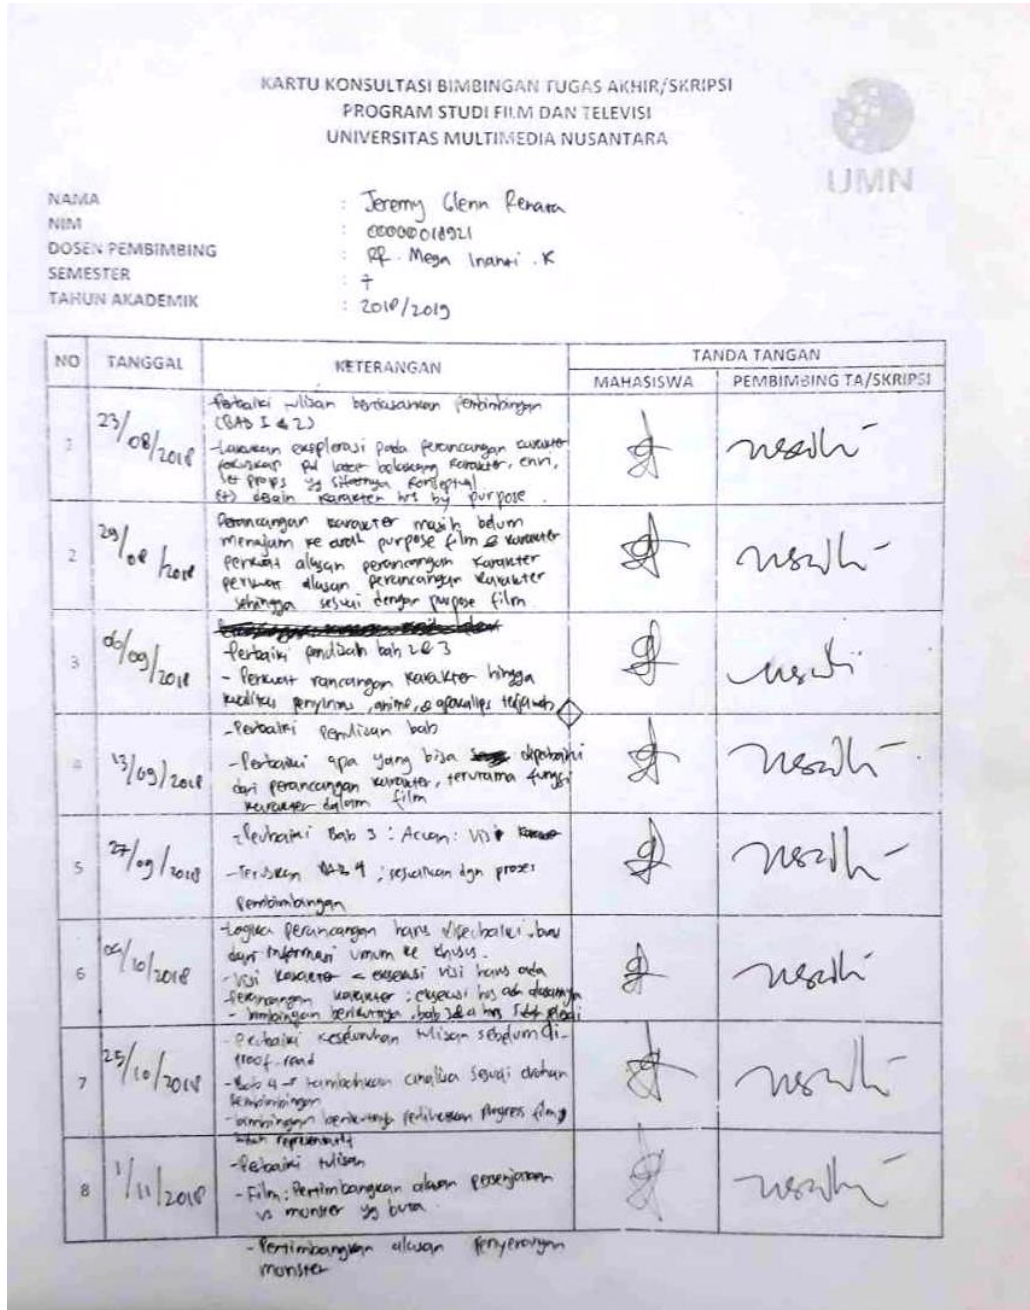 KARTU KONSULTASI BIMBINGAN TUGAS AKHIR/SKRIPSI
PROGRAM STUDI FILM DAN TELEVISI
UNIVERSITAS MULTIMEDIA NUSANTARA
UMN
NAMA : Jeremy Glenn Renara
NIM : 00000018921
DOSEN PEMBIMBING : RR. Mega Inanti . K
SEMESTER : 7
TAHUN AKADEMIK : 2018/2019
NO TANGGAL KETERANGAN TANDA TANGAN
MAHASISWA PEMBIMBING TA/SKRIPSI
1 23/08/2018
Perbaiki tulisan berdasarkan Pembimbingan
(BAB I & 2)
- Lakukan eksplorasi pada perancangan karakter
fokuskan pd latar belakang karakter,
set props yg sifatnya konseptual
desain karakter hrs by purpose .
2 29/08/2018
Perancangan karakter masih belum
menajam ke arah purpose film & karakter
perkuat alasan perancangan karakter
perkuat alasan perancangan karakter
sehingga sesuai dengan purpose film
3 06/09/2018
- Perbaiki penulisan bab 2 & 3
- Perkuat rancangan karakter hingga
kualitas , anime, & apokalips terjawab
4 13/09/2018
- Perbaiki penulisan bab
- Perbaiki apa yang bisa diperbaiki
dari perancangan karakter, terutama fungsi
karakter dalam film
5 27/09/2018
- Perbaiki Bab 3 : Acuan : Visi
- Teruskan BAB 4 ; sesuaikan dgn proses
Pembimbingan
6 04/10/2018
- Logika perancangan harus diperbaiki,
dari informasi umum ke khusus.
- Visi karakter eksekusi visi harus ada
- Perancangan karakter : eksekusi hrs ada dasarnya
- bimbingan berikutnya, bab hrs
7 25/10/2018
- Perbaiki keseluruhan tulisan sebelum di-
proof-read
- Bab 4 → tambahkan analisa sesuai arahan
Pembimbingan
- bimbingan berikutnya perlihatkan progress film yg
8 1/11/2018
- Perbaiki tulisan
- Film : Pertimbangkan alasan persenjataan
vs monster yg buta .
- Pertimbangkan alasan Penyerangan
monster